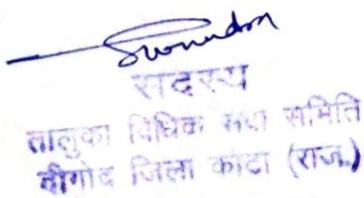 सदस्य
तालुका विधिक सेवा समिति
दीगोद जिला कोटा (राज.)